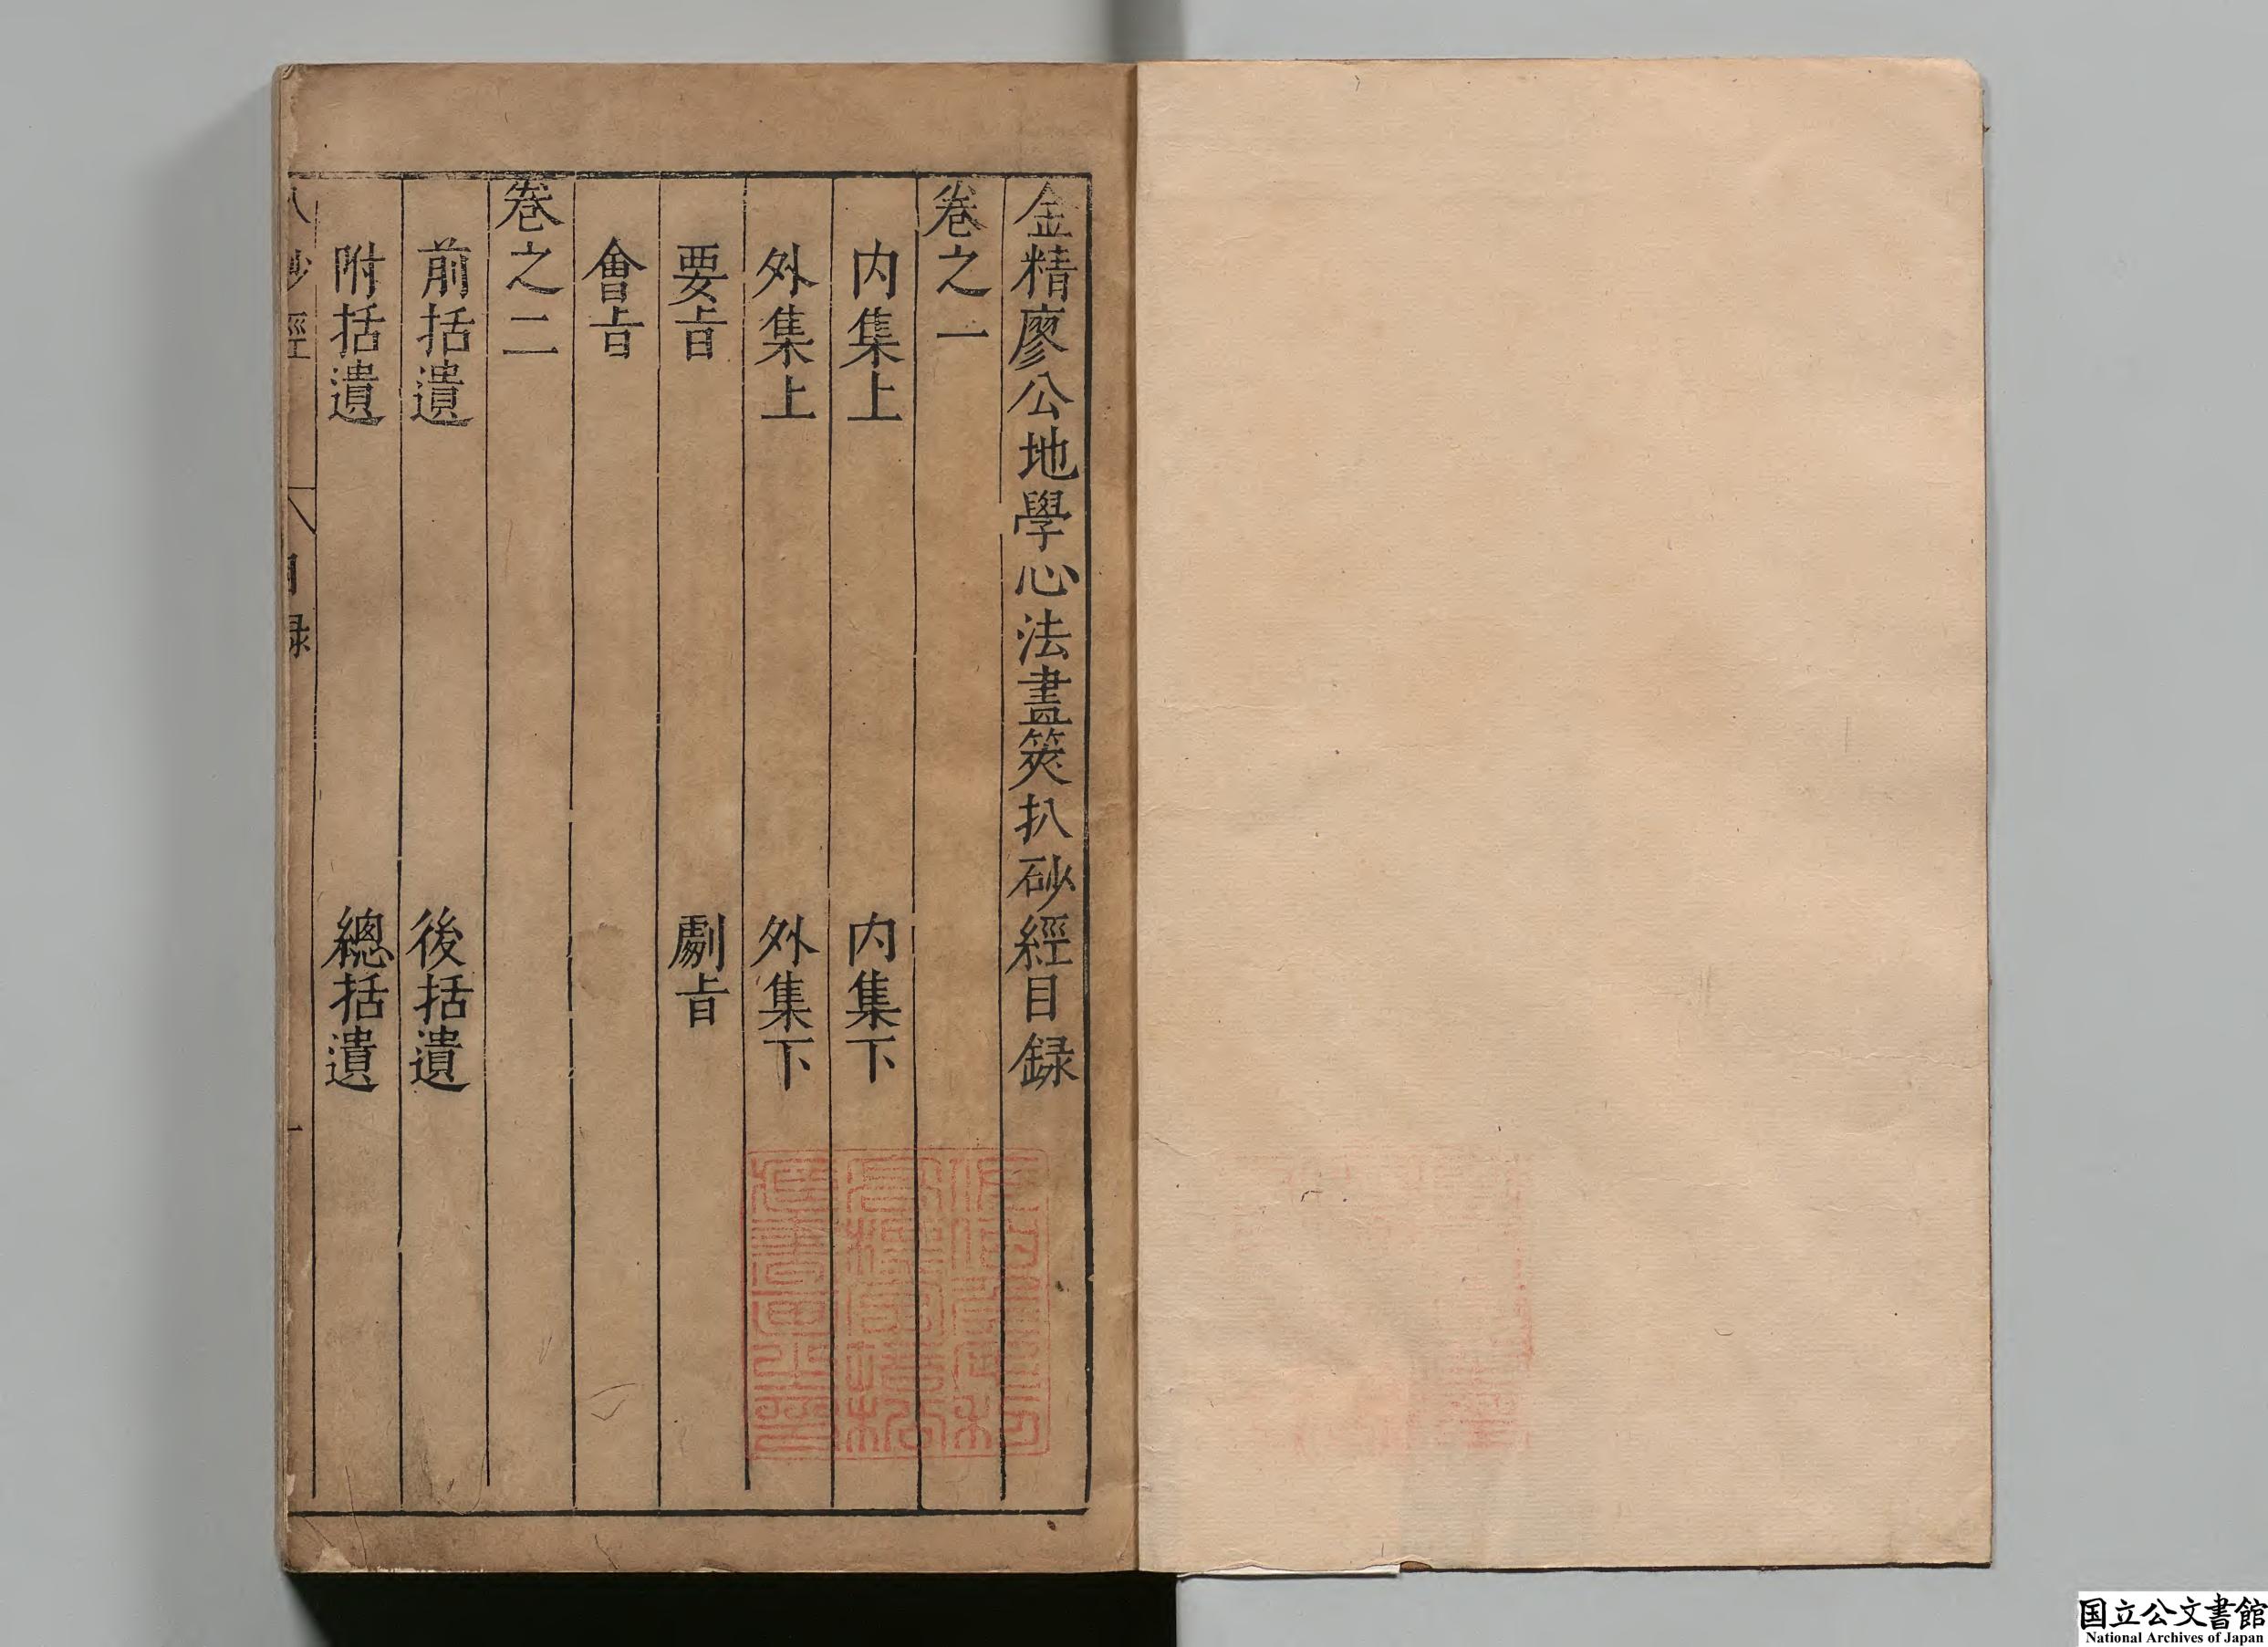 金精廖公地學心法畫筴扒砂經目録
卷之一
内集上　内集下
外集上　外集下
要㫖　劇㫖
會㫖
卷之二
前括遺　後括遺
附括遺　總括遺
砂經　目録　一
国立公文書館
National Archives of Japan